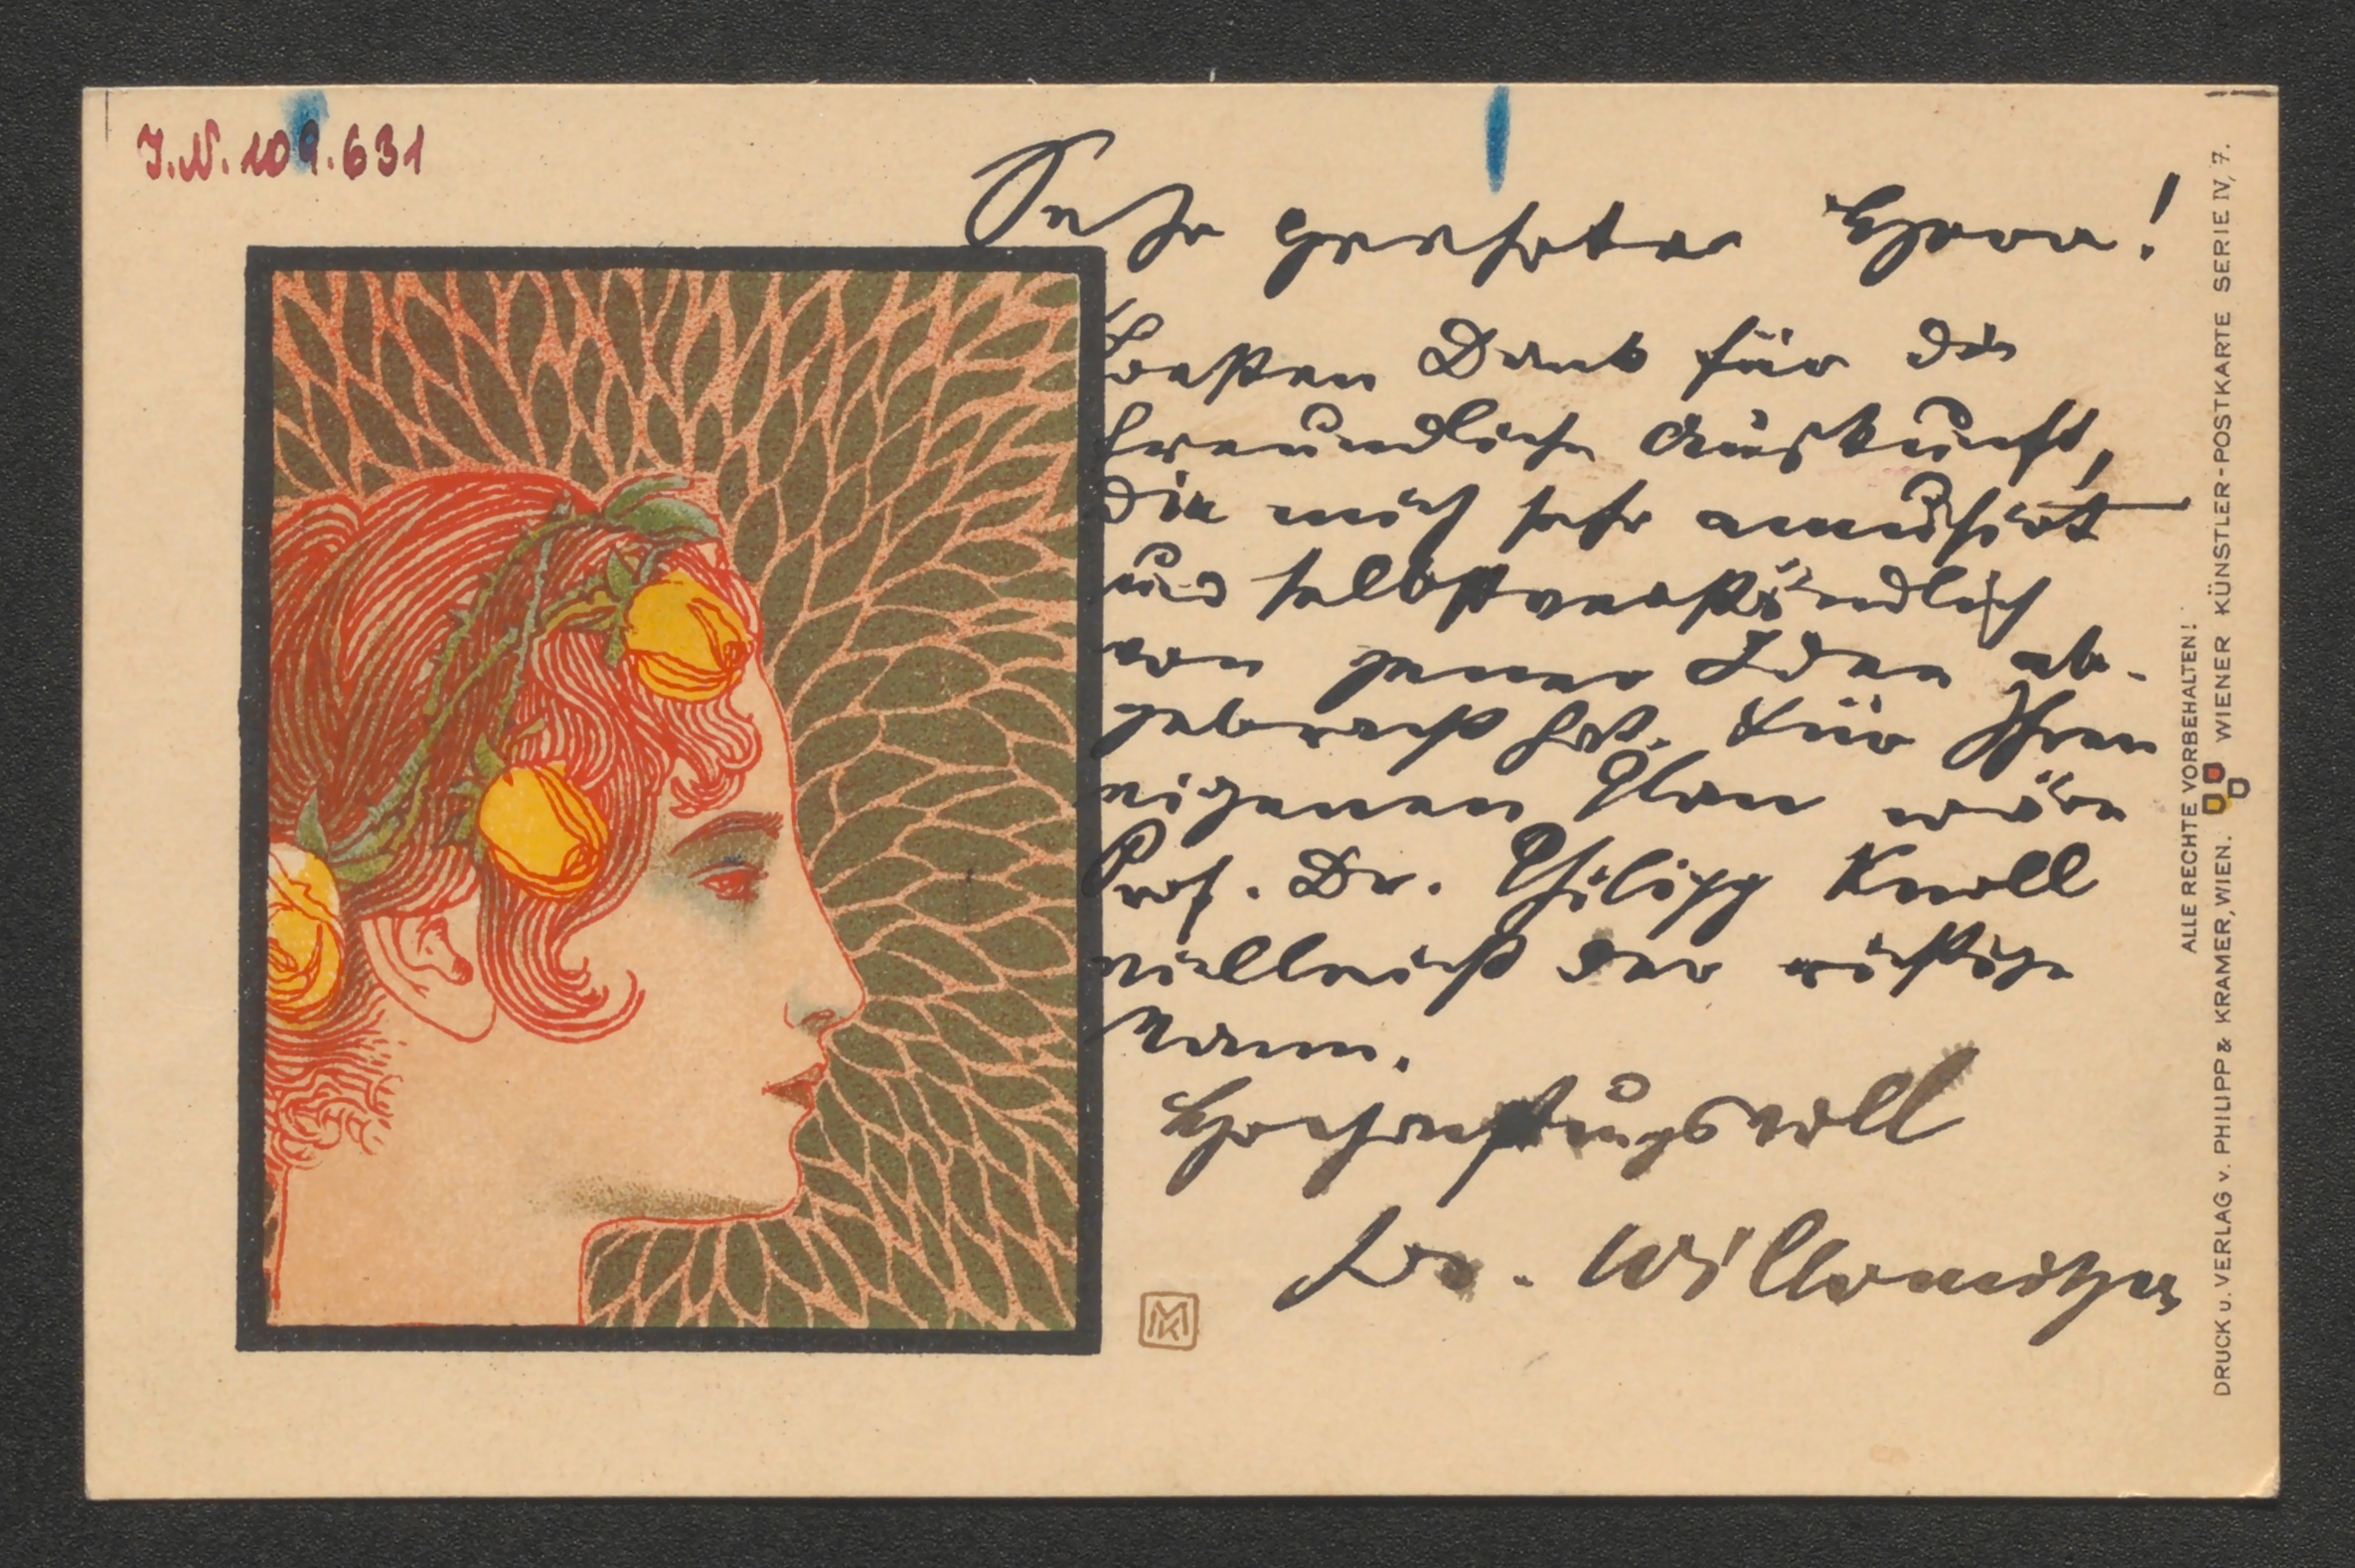 I.N. 109.631
Sehr geehrter Herr!
besten Dank für die
freundliche Auskunft,
die mich sehr amüsirt
und selbstverständlich
von jener Idee ab-
gebracht hat. Für Ihren
eigenen Plan wäre
Prof. Dr. Philipp Knoll
vielleicht der richtige
Mann.
Hochachtungsvoll
Dr. Willomitzer
MK
ALLE RECHTE VORBEHALTEN!
DRUCK u. VERLAG v. PHILIPP & KRAMER, WIEN. WIENER KÜNSTLER-POSTKARTE SERIE IV, 7.